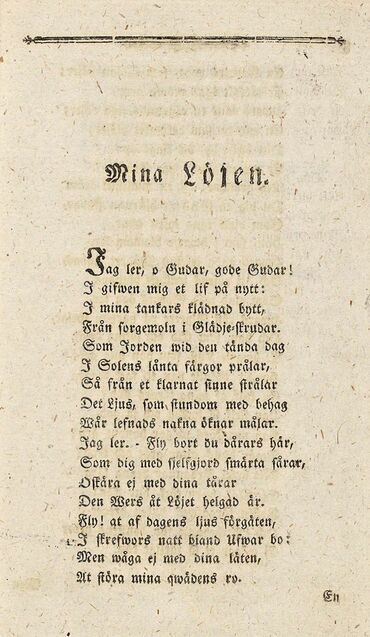 Mina Löjen.
Jag ler, o Gudar, gode Gudar!
I gifwen mig et lif på nytt:
I mina tankars klädnad bytt,
Från sorgemoln i Glädje-skrudar.
Som Jorden wid den tända dag
I Solens lånta färgor prålar,
Så från et klarnat sinne strålar
Det Ljus, som stundom med behag
Wår lefnads nakna öknar målar.
Jag ler. - Fly bort du dårars här,
Som dig med sjelfgjord smärta sårar,
Oskära ej med dina tårar
Den Wers åt Löjet helgad är.
Fly! at af dagens ljus förgäten,
I skrefwors natt bland Ufwar bo:
Men wåga ej med dina läten,
At störa mina qwädens ro.
En